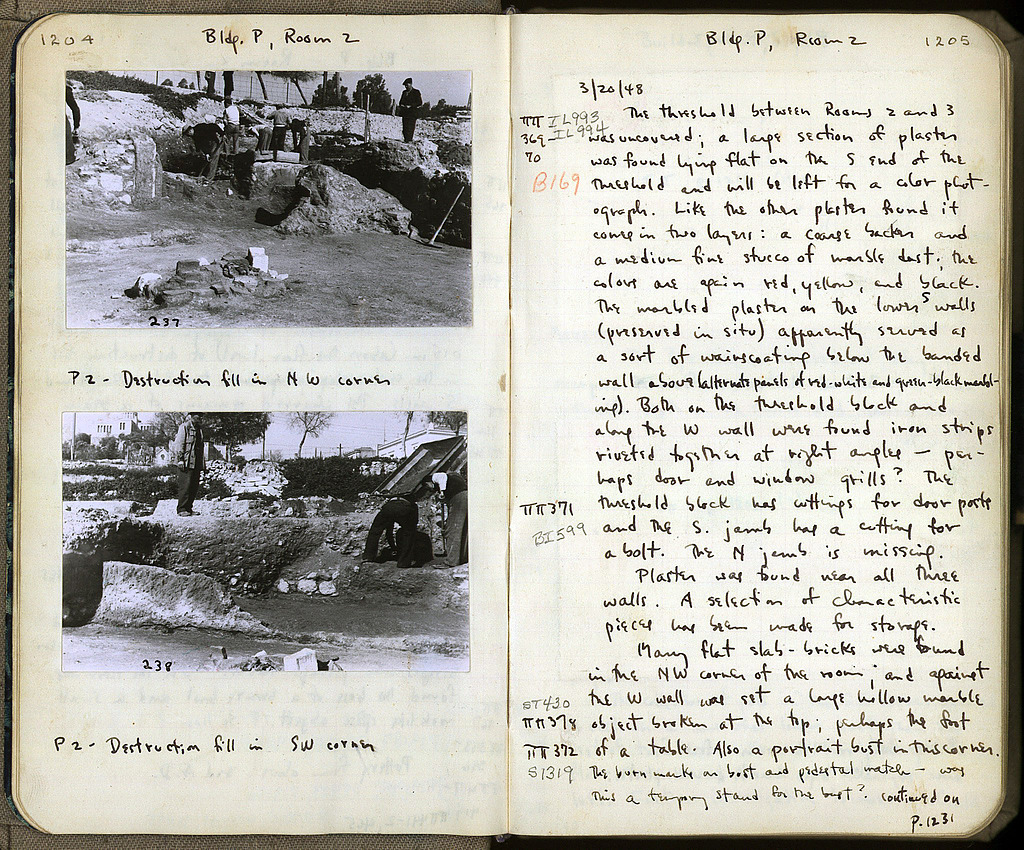 1204
Bldg. P, Room 2
237
P2 - Destruction fill in NW corner
238
P2 - Destruction fill in SW corner
Bldg. P, Room 2
1205
3/20/48
ΠΠ IL993
369- IL994
70
B169
The threshold between Rooms 2 and 3
was uncovered; a large section of plaster
was found lying flat on the S end of the
threshold and will be left for a color phot-
ograph. Like the other plaster found it
comes in two layers: a coarse backer and
a medium fine stucco of marble dust; the
colors are again red, yellow, and black.
The marbled plaster on the lower S walls
(preserved in situ) apparently served as
a sort of wainscoating below the banded
wall above (alternate panels of red-white and green-black marbl-
ing). Both on the threshold block and
along the W wall were found iron strips
riveted together at right angles - per-
haps door and window grills? The
ΠΠ371
threshold block has cuttings for door posts
BI599
and the S. jamb has a cutting for
a bolt. The N jamb is missing.
Plaster was found near all three
walls. A selection of characteristic
pieces has been made for storage.
Many flat slab-bricks were found
in the NW corner of the room; and against
ST430
the W wall was set a large hollow marble
ΠΠ378
object broken at the top; perhaps the foot
ΠΠ372
of a table. Also a portrait bust in this corner.
S1319
The burn marks on bust and pedestal match - was
this a temporary stand for the bust? continued on
p. 1231